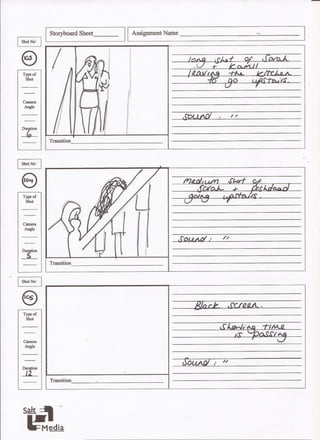 Storyboard Sheet
Assignment Name
Shot No'
Type of
Shot
Camera
Angle
Duration
6
Transition
long shot of Sarah
+ Kamll
leaving the kitchen
to go upstairs.
sound : "
Shot No'
Type of
Shot
Camera
Angle
Duration
5
Transition
medium shot of
Sarah +
going upstairs.
Sound : "
Shot No'
Type of
Shot
Camera
Angle
Duration
12
Transition
Black screen.
Showing time
is passing
Sound : "
Salt
Media